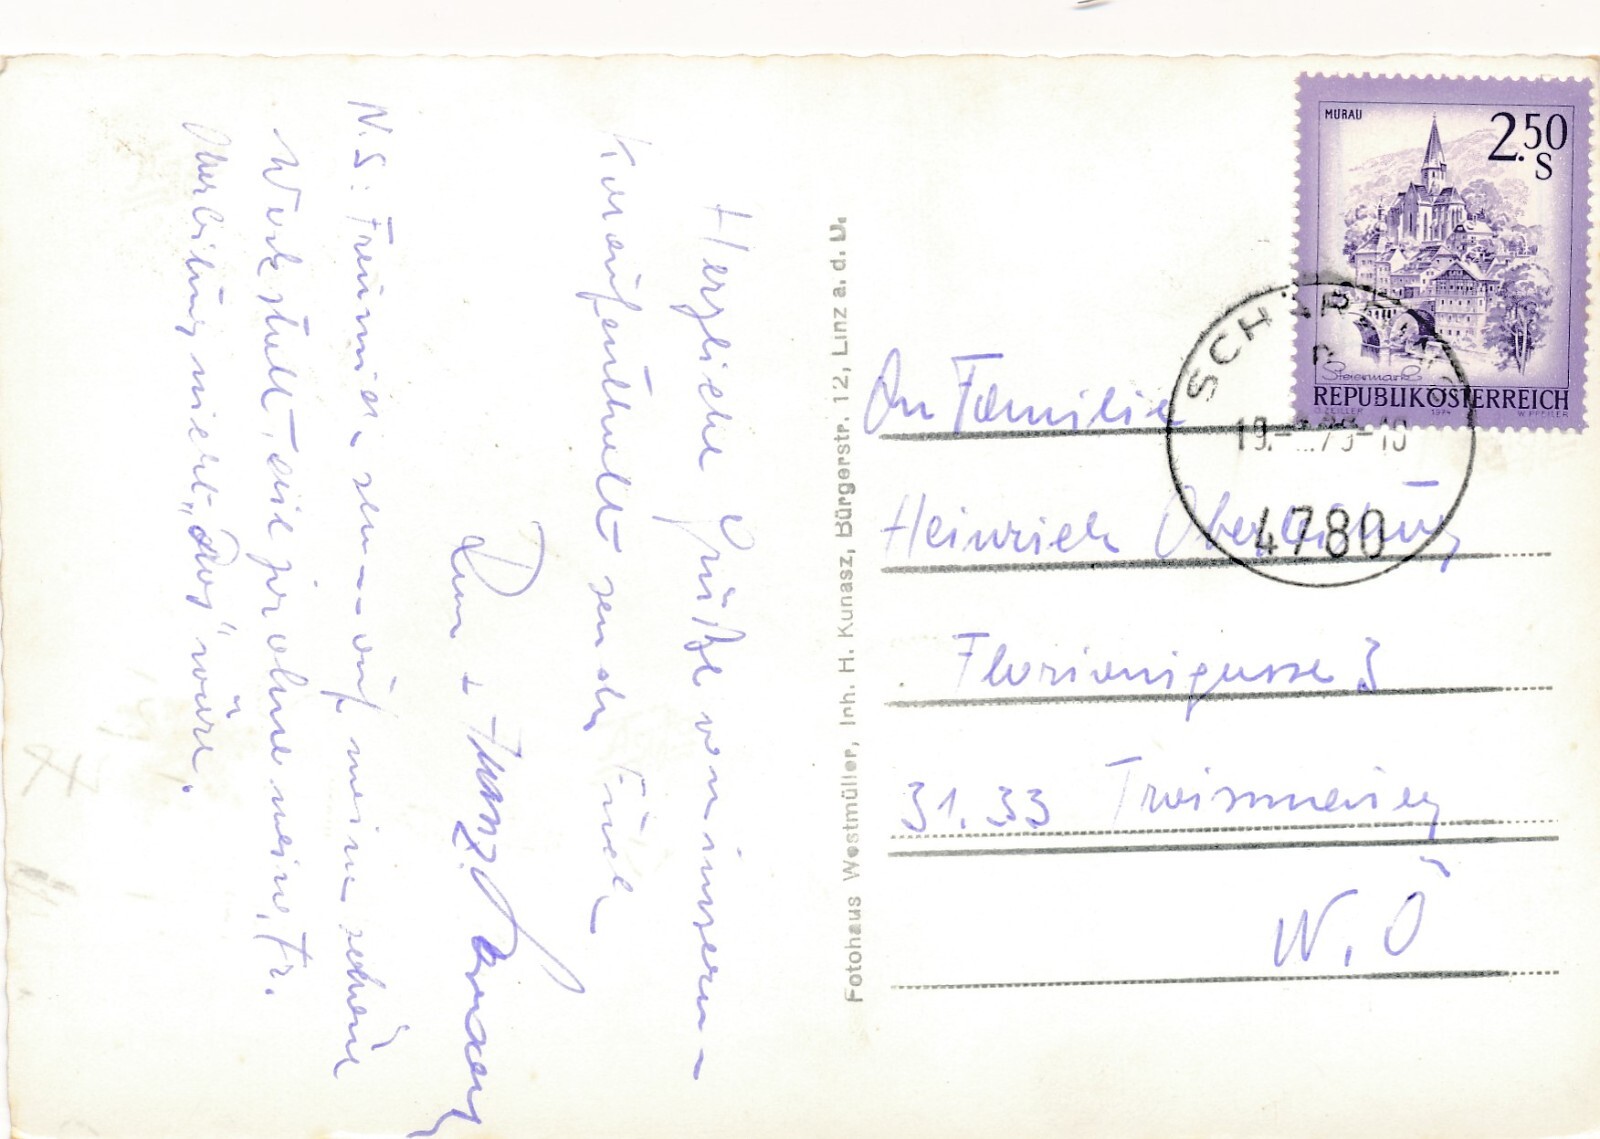 Herzliche Grüße von unserm
Kuraufenthalt sendet Euch
+ Franz
N.S: Freu mich schon auf meine schöne
Werkstatt, die ja ohne meine, Fr.
Oberleitung nicht „das“ wäre.
Fotohaus Westmüller, Inh. H. Kunasz, Bürgerstr. 12, Linz a. d. D.
MURAU
2.50
S
Steiermark
REPUBLIK ÖSTERREICH
O. ZEILLER 1974 W. PFEILER
SCHÄRDING
4780
An Familie
Heinrich
Florianigasse 3
31.33 Traismauer
N.Ö